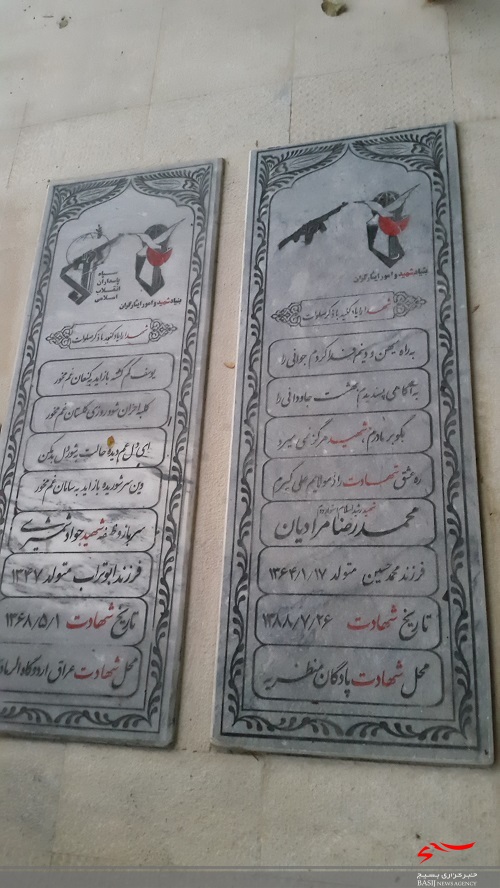 بنیاد شهید و امور ایثارگران
شهدا را یاد کنید با ذکر صلوات
به راه میهن و دینم فدا کردم جوانی را
به آگاهی پسندیدم بهشت جاودانی را
بگو بر مادرم، شهید هرگز نمی میرد
ره عشق شهادت را ز مولایم علی گیرم
محمدرضا مرادیان
فرزند محمدحسین متولد ۱۳۶۴/۱/۱۷
تاریخ شهادت ۱۳۸۸/۷/۲۶
محل شهادت پادگان منظریه
سپاه
پاسداران
انقلاب
اسلامی
بنیاد شهید و امور ایثارگران
شهدا را یاد کنید با ذکر صلوات
یوسف گم گشته باز آید به کنعان غم مخور
کلبه احزان شود روزی گلستان غم مخور
ای دل غم دیده حالت به شود دل بد مکن
وین سر شوریده باز آید به سامان غم مخور
سرباز وظیفه شهید جواد
فرزند ابوتراب متولد ۱۳۴۷
تاریخ شهادت ۱۳۶۸/۵/۱
محل شهادت عراق اردوگاه
خبرگزاری بسیج
BASIJ NEWS AGENCY